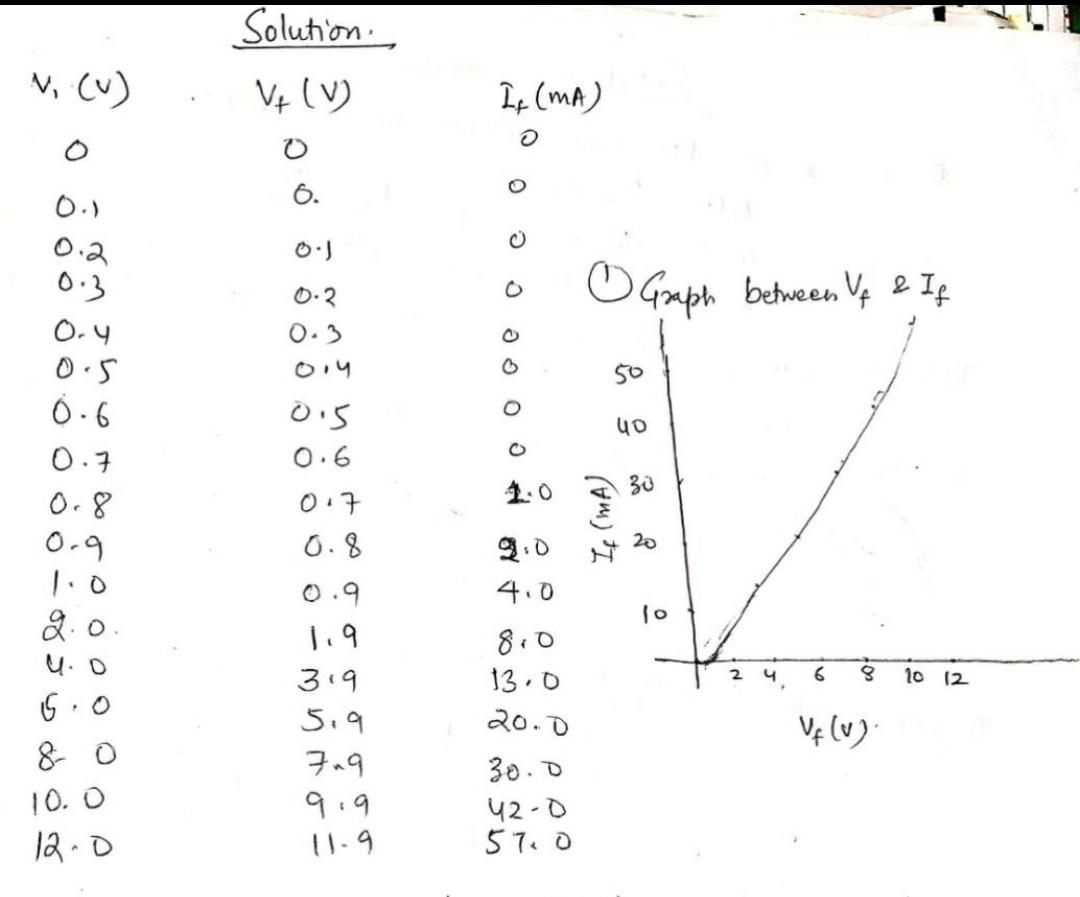 Solution.
V₁ (V) Vf (V) If (mA)
0 0 0
0.1 0. 0
0.2 0.1 0
0.3 0.2 0
0.4 0.3 0
0.5 0.4 0
0.6 0.5 0
0.7 0.6 0
0.8 0.7 1.0
0.9 0.8 2.0
1.0 0.9 4.0
2.0. 1.9 8.0
4.0 3.9 13.0
6.0 5.9 20.0
8.0 7.9 30.0
10.0 9.9 42.0
12.0 11.9 57.0
① Graph between Vf & If
50
40
30
20
10
If (mA)
2 4, 6 8 10 12
Vf (V).